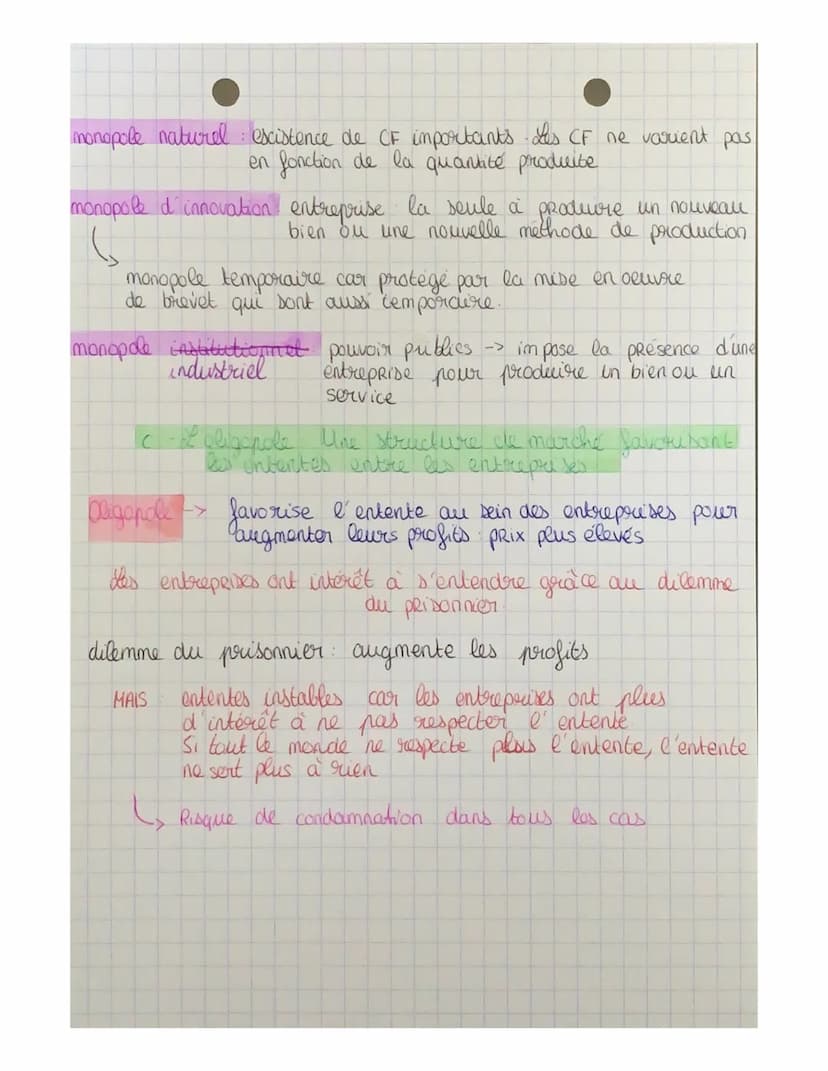 monopole naturel : escistence de CF importants. Les CF ne varient pas
en fonction de la quantité produite
monopole d'innovation : entreprise la seule à produire un nouveau
bien ou une nouvelle méthode de production
monopole temporaire car protégé par la mise en oeuvre
de brevet qui sont aussi temporaire.
monopole institutionnel pouvoir publics -> impose la présence d'une
industriel entreprise pour produire un bien ou un
service
C - L'oligopole Une structure de marché favorisant
les ententes entre les entreprises
Oligopole -> favorise l'entente au sein des entreprises pour
augmenter leurs profits : prix plus élevés
Les entreprises ont intérêt à s'entendre grâce au dilemme
du prisonnier
dilemme du prisonnier : augmente les profits
MAIS : ententes instables car les entreprises ont plus
d'intérêt à ne pas respecter l'entente
Si tout le monde ne respecte plus l'entente, l'entente
ne sert plus à rien
Risque de condamnation dans tous les cas